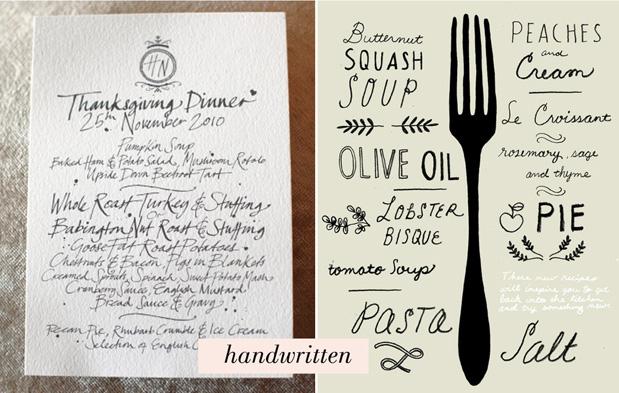 HN
Thanksgiving Dinner
25th November 2010
Pumpkin Soup
Baked Ham & Potato Salad, Mushroom Rotolo
Upside Down Beetroot Tart
Whole Roast Turkey & Stuffing
or
Babington Nut Roast & Stuffing
Goose Fat Roast Potatoes
Chestnuts & Bacon, Pigs in Blankets
Creamed Sprouts, Spinach, Sweet Potato Mash
Cranberry Sauce, English Mustard
Bread Sauce & Gravy
Pecan Pie, Rhubarb Crumble & Ice Cream
Selection of English
handwritten
Butternut
SQUASH
SOUP
OLIVE OIL
LOBSTER
BISQUE
tomato Soup
PASTA
PEACHES
and
Cream
Le Croissant
rosemary, sage
and thyme
PIE
These new recipes
will inspire you to get
back into the kitchen
and try something new.
Salt